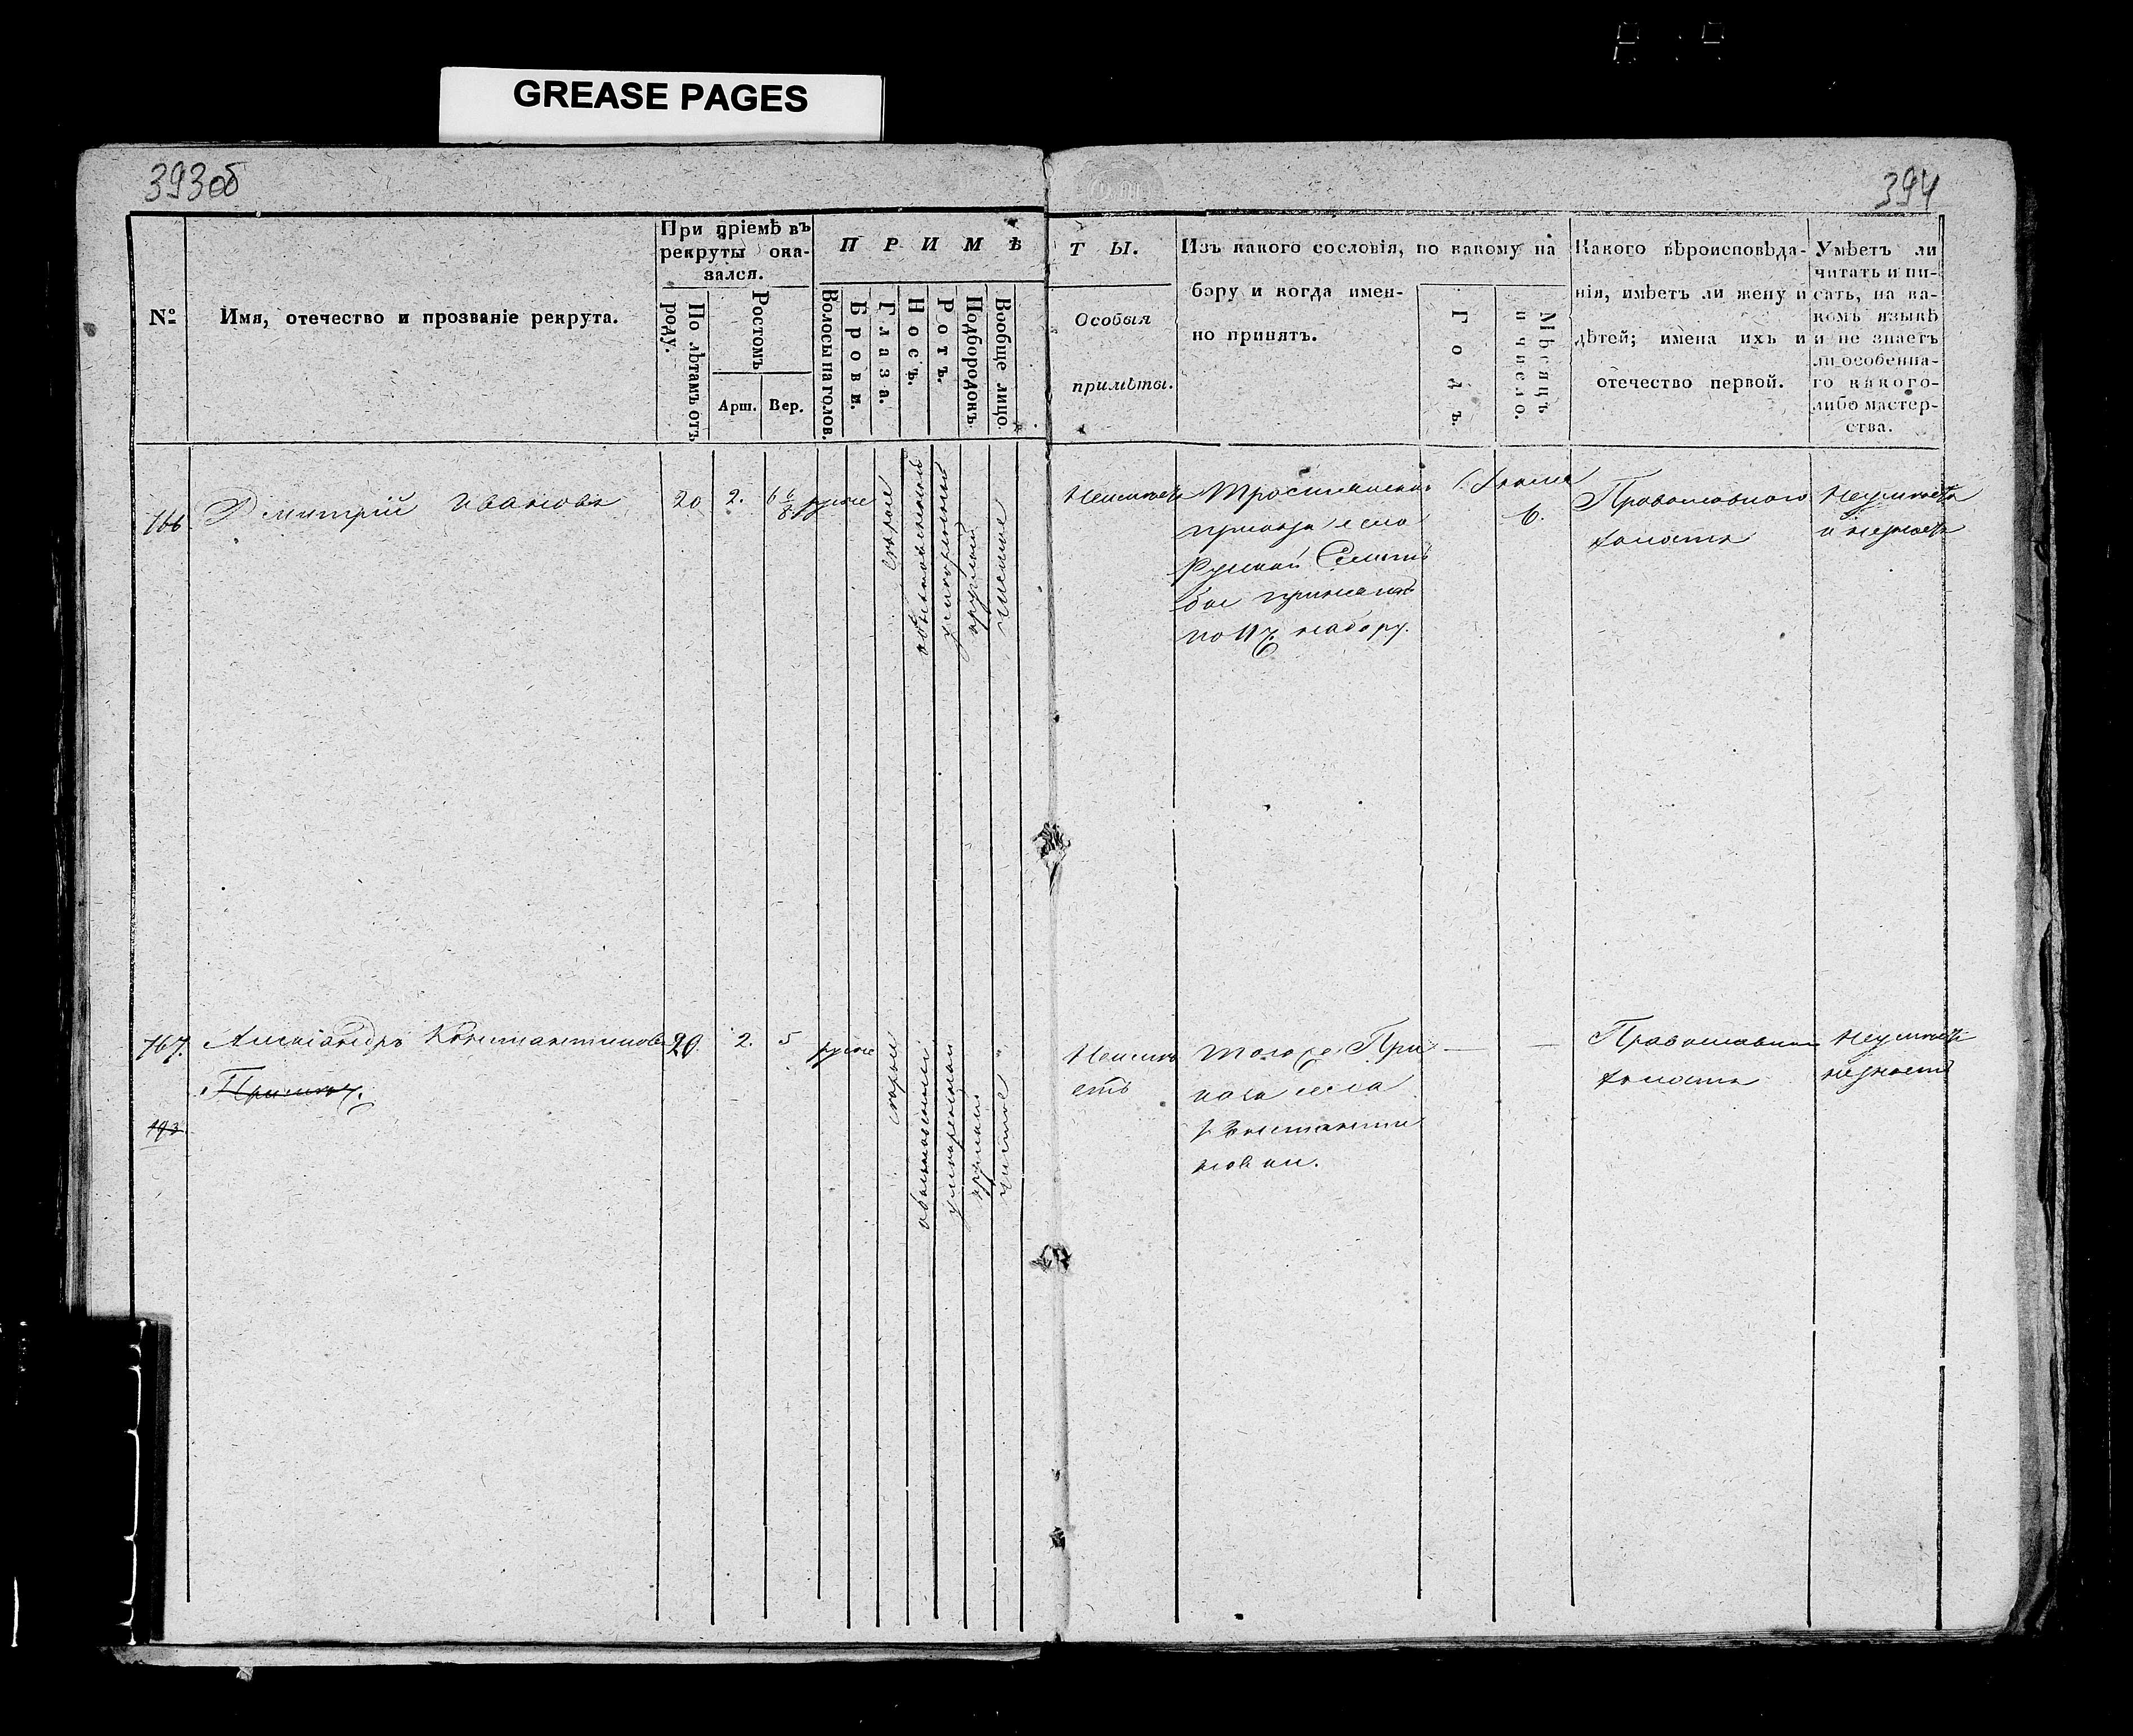 GREASE PAGES
393об
394
№
Имя, отечество и прозваніе рекрута.
При пріемѣ въ
рекруты ока-
зался.
По лѣтамъ отъ
роду.
Ростомъ
Арш.
Вер.
ПРИМѢ
Волосы на голов.
Брови.
Глаза.
Носъ.
Ротъ.
Подбородокъ.
Вообще лицо
ТЫ.
Особыя
примѣты.
Изъ какого сословія, по какому на
бору и когда имен-
но принятъ.
Годъ.
Мѣсяцъ
и число.
Какого вѣроисповѣда-
нія, имѣетъ ли жену и
дѣтей; имена ихъ и
отечество первой.
Умѣетъ ли
читать и пи-
сать, на ка-
комъ языкѣ
и не знаетъ
ли особенна-
го какого-
либо мастер-
ства.
166
Дмитрій Ивановъ
20
2.
6 6/8
русые
серые
обыкновенный
умеренный
круглый
чистое
Неимѣетъ
села
по 117 набору.
6.
Православнаго
холостъ
Неумѣетъ
и незнаетъ
167.
Александръ Константиновъ
20
2.
5
русые
серые
обыкновенный
умеренный
круглый
чистое
Неимѣ
етъ
того же При
каза села
Константи
новки.
—
—
Православнаго
холостъ
Неумѣетъ
незнаетъ
193